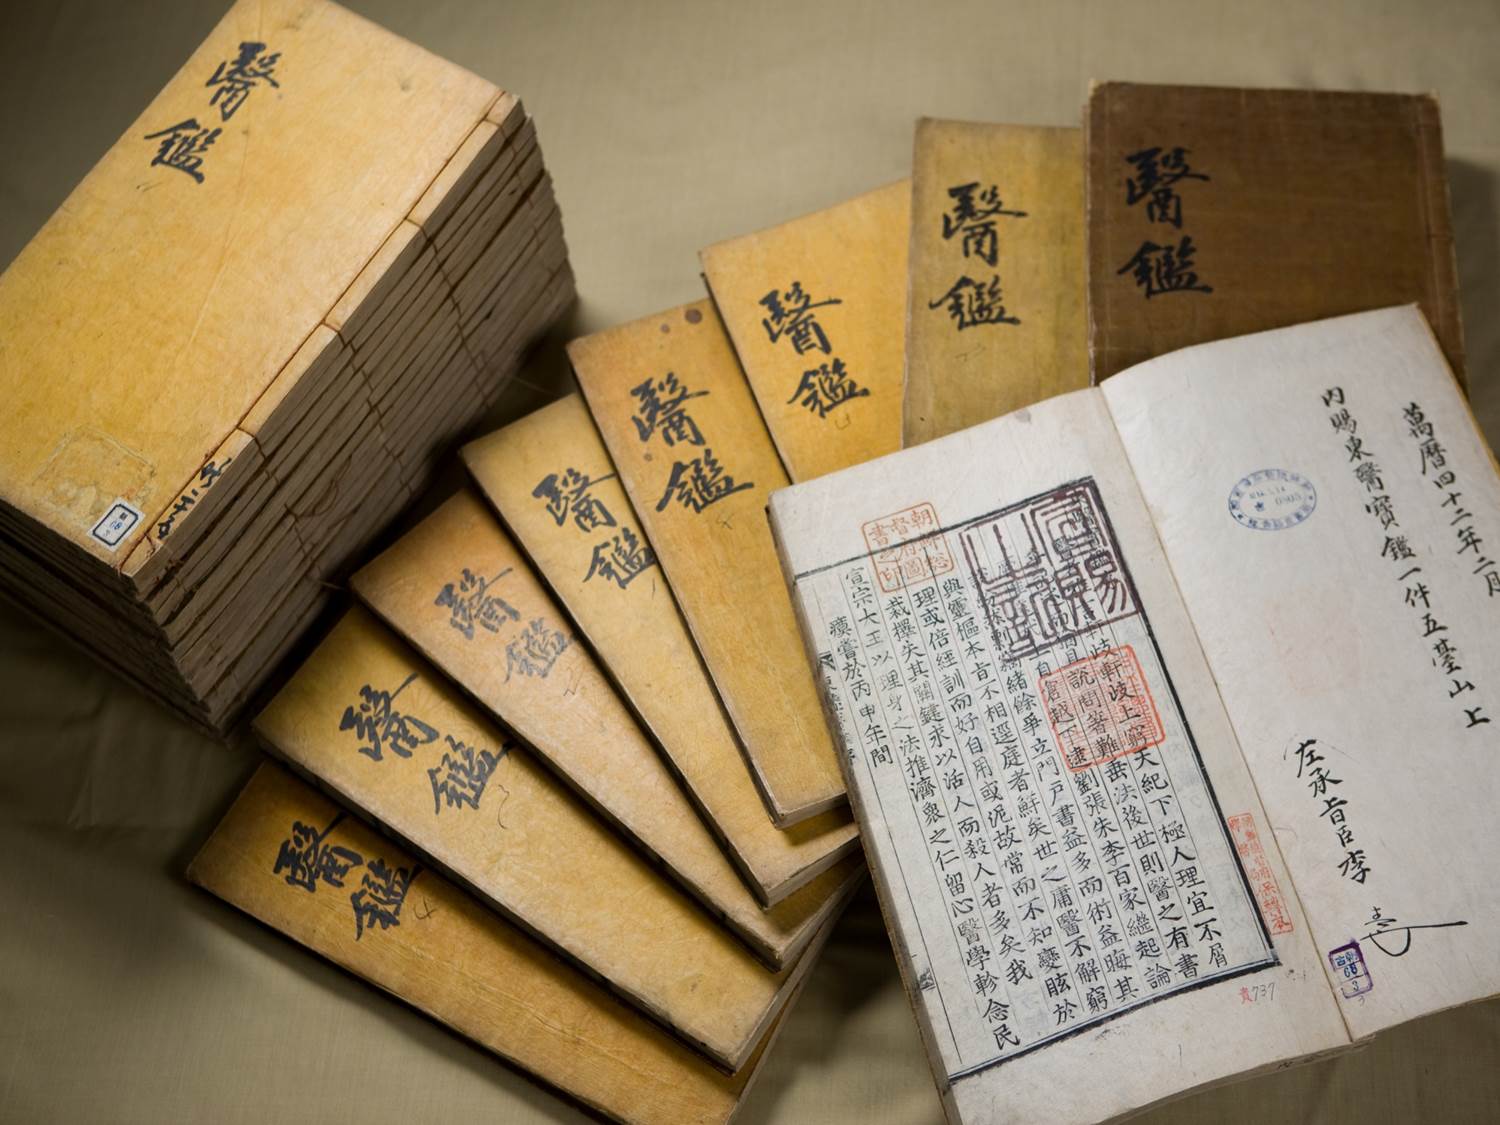 醫鑑
醫鑑
醫鑑
醫鑑
醫鑑
醫鑑
醫鑑
醫鑑
醫鑑
醫鑑
萬曆四十二年二月
內賜東醫寶鑑一件五臺山上
左承旨臣李
軒岐上窮天紀下極人理宜不屑
說問著難垂法後世則醫之有書
劉張朱李百家繼起論
緒餘爭立門戶書益多而術益晦其
自
與靈樞本旨不相逕庭者鮮矣世之庸醫不解窮
理或倍經訓而好自用或泥故常而不知變眩於
裁擇失其關鍵求以活人而殺人者多矣我
宣宗大王以理身之法推濟衆之仁留心醫學軫念民
瘼嘗於丙申年間
朝鮮總
督府圖
書之印
貴737